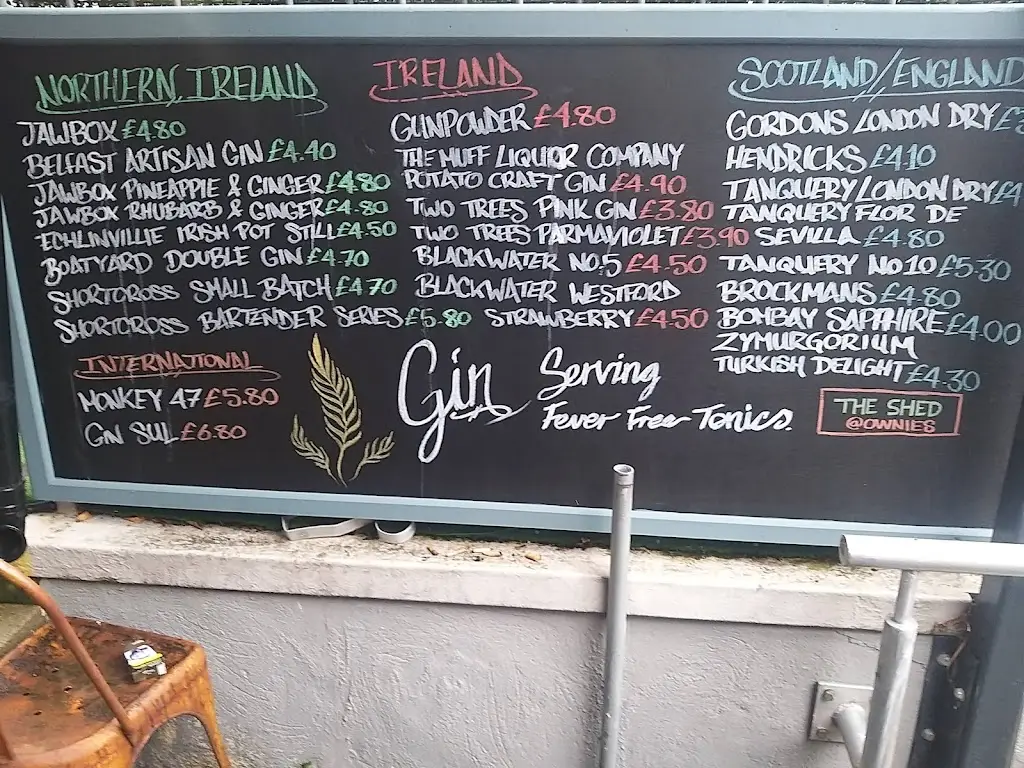 NORTHERN, IRELAND
JAWBOX £4.80
BELFAST ARTISAN GIN £4.40
JAWBOX PINEAPPLE & GINGER £4.80
JAWBOX RHUBARB & GINGER £4.80
ECHLINVILLE IRISH POT STILL £4.50
BOATYARD DOUBLE GIN £4.70
SHORTCROSS SMALL BATCH £4.70
SHORTCROSS BARTENDER SERIES £5.80
INTERNATIONAL
MONKEY 47 £5.80
GIN SUL £6.80
IRELAND
GUNPOWDER £4.80
THE MUFF LIQUOR COMPANY
POTATO CRAFT GIN £4.90
TWO TREES PINK GIN £3.80
TWO TREES PARMAVIOLET £3.90
BLACKWATER NO.5 £4.50
BLACKWATER WESTFORD
STRAWBERRY £4.50
SCOTLAND/ENGLAND
GORDONS LONDON DRY
HENDRICKS £4.10
TANQUERY LONDON DRY £4
TANQUERY FLOR DE
SEVILLA £4.80
TANQUERY NO10 £5.30
BROCKMANS £4.80
BOMBAY SAPPHIRE £4.00
ZYMURGORIUM
TURKISH DELIGHT £4.30
Gin
Serving
Fever Free Tonics.
THE SHED
@OWNIES